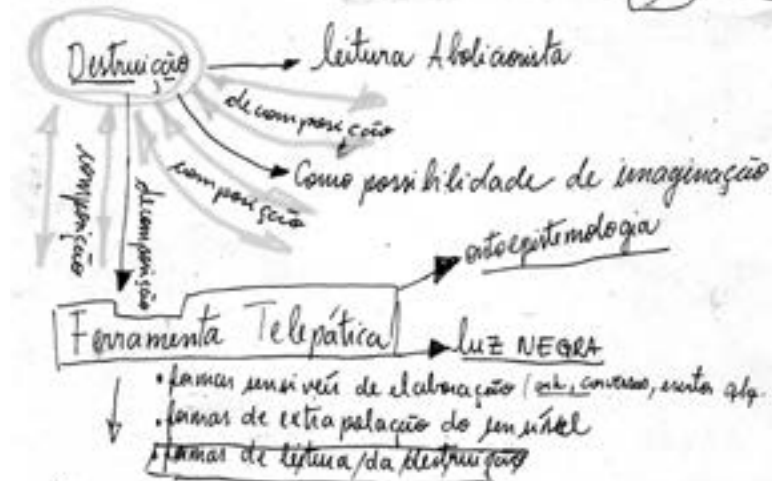 Destruição
leitura Abolicionista
decomposição
Como possibilidade de imaginação
composição
composição
decomposição
ontoepistemologia
Ferramenta Telepática
LUZ NEGRA
• formas sensíveis de elaboração (arte, conversas, escritos
• formas de extrapolação do sensível
• formas de leitura/da destruição